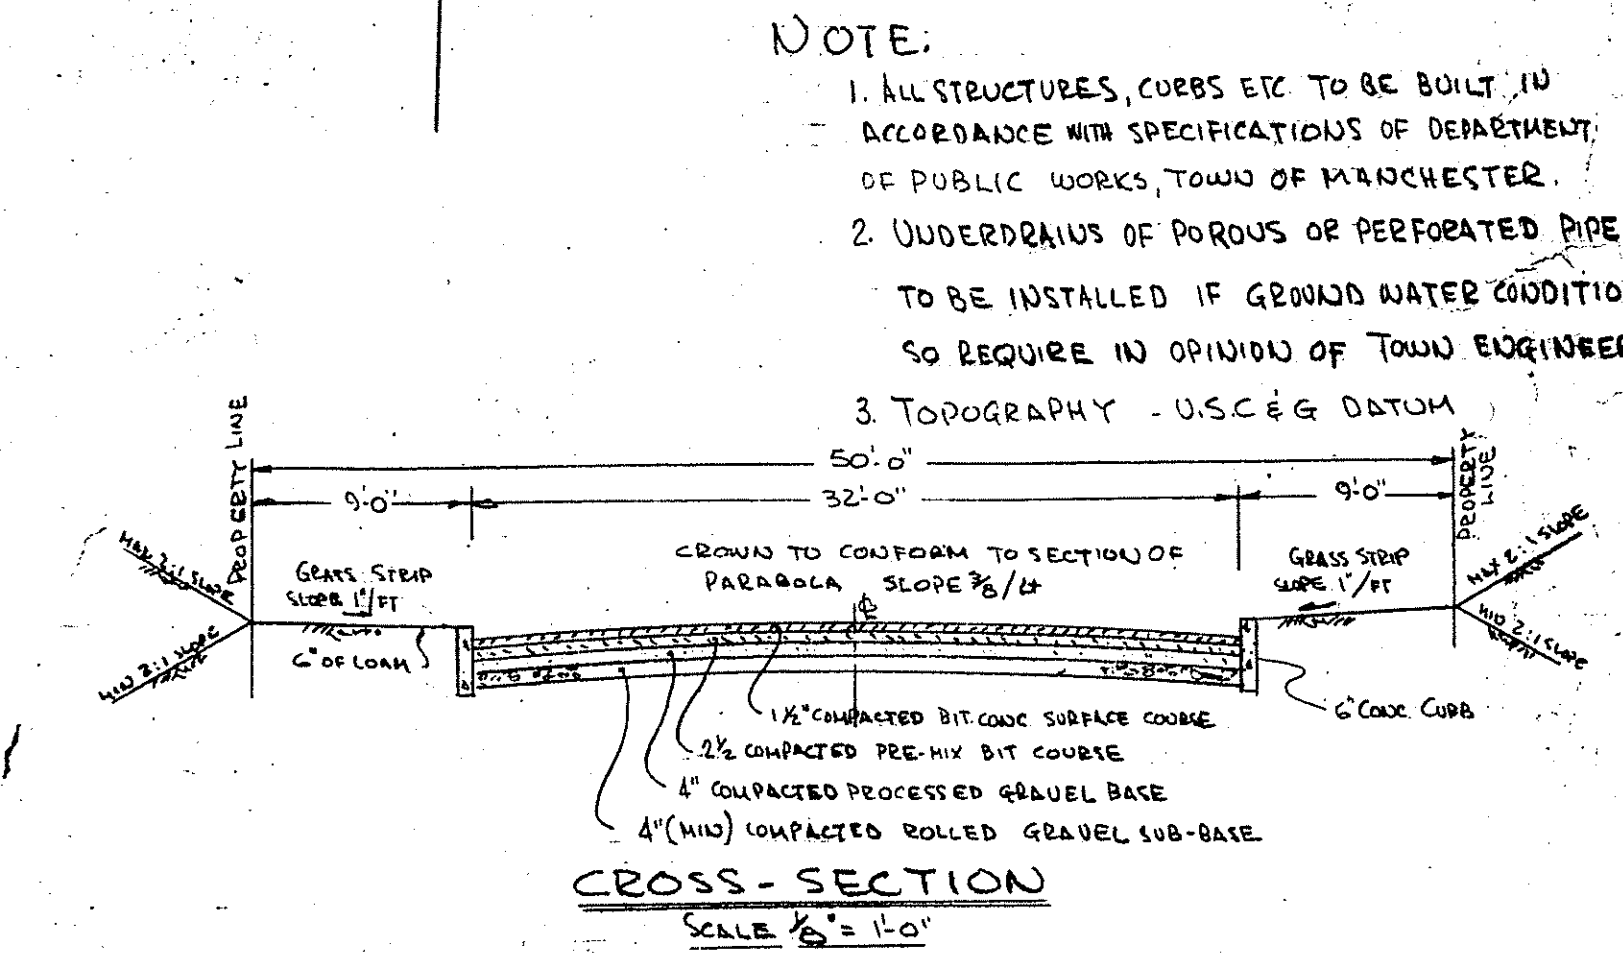 NOTE:
1. ALL STRUCTURES, CURBS ETC. TO BE BUILT IN
ACCORDANCE WITH SPECIFICATIONS OF DEPARTMENT
OF PUBLIC WORKS, TOWN OF MANCHESTER.
2. UNDERDRAINS OF POROUS OR PERFORATED PIPE
TO BE INSTALLED IF GROUND WATER CONDITIO
SO REQUIRE IN OPINION OF TOWN ENGINEER
3. TOPOGRAPHY - U.S.C & G DATUM
PROPERTY LINE
50'-0"
PROPERTY
LINE
9'-0"
32'-0"
9'-0"
MAX 2:1 SLOPE
GRASS STRIP
SLOPE 1"/FT
CROWN TO CONFORM TO SECTION OF
PARABOLA SLOPE 3/8 /
GRASS STRIP
SLOPE 1"/FT
MAX 2:1 SLOPE
℄
MIN 2:1 SLOPE
6" OF LOAM
MIN 2:1 SLOPE
1½" COMPACTED BIT. CONC. SURFACE COURSE
6" CONC. CURB
2½ COMPACTED PRE-MIX BIT COURSE
4" COMPACTED PROCESSED GRAVEL BASE
4" (MIN) COMPACTED ROLLED GRAVEL SUB-BASE
CROSS-SECTION
SCALE 1/8" = 1'-0"